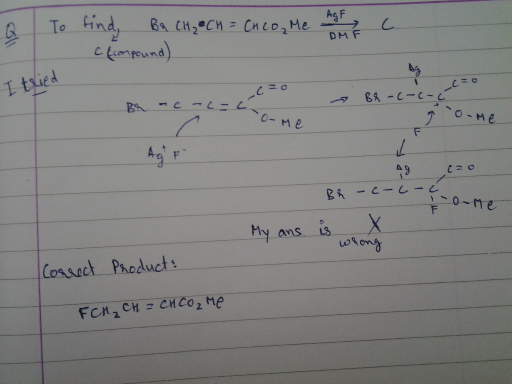 Q To find, BrCH2CH = CHCO2Me AgF DMF C
C (compound)
I tried
Br - C - C = C C=O O-Me
Ag+ F-
→ Ag
BR - C - C - C C=O O-Me
F
Ag
BR - C - C - C C=O F O-Me
My ans. is X
wrong
Correct Product:
FCH2CH = CHCO2Me